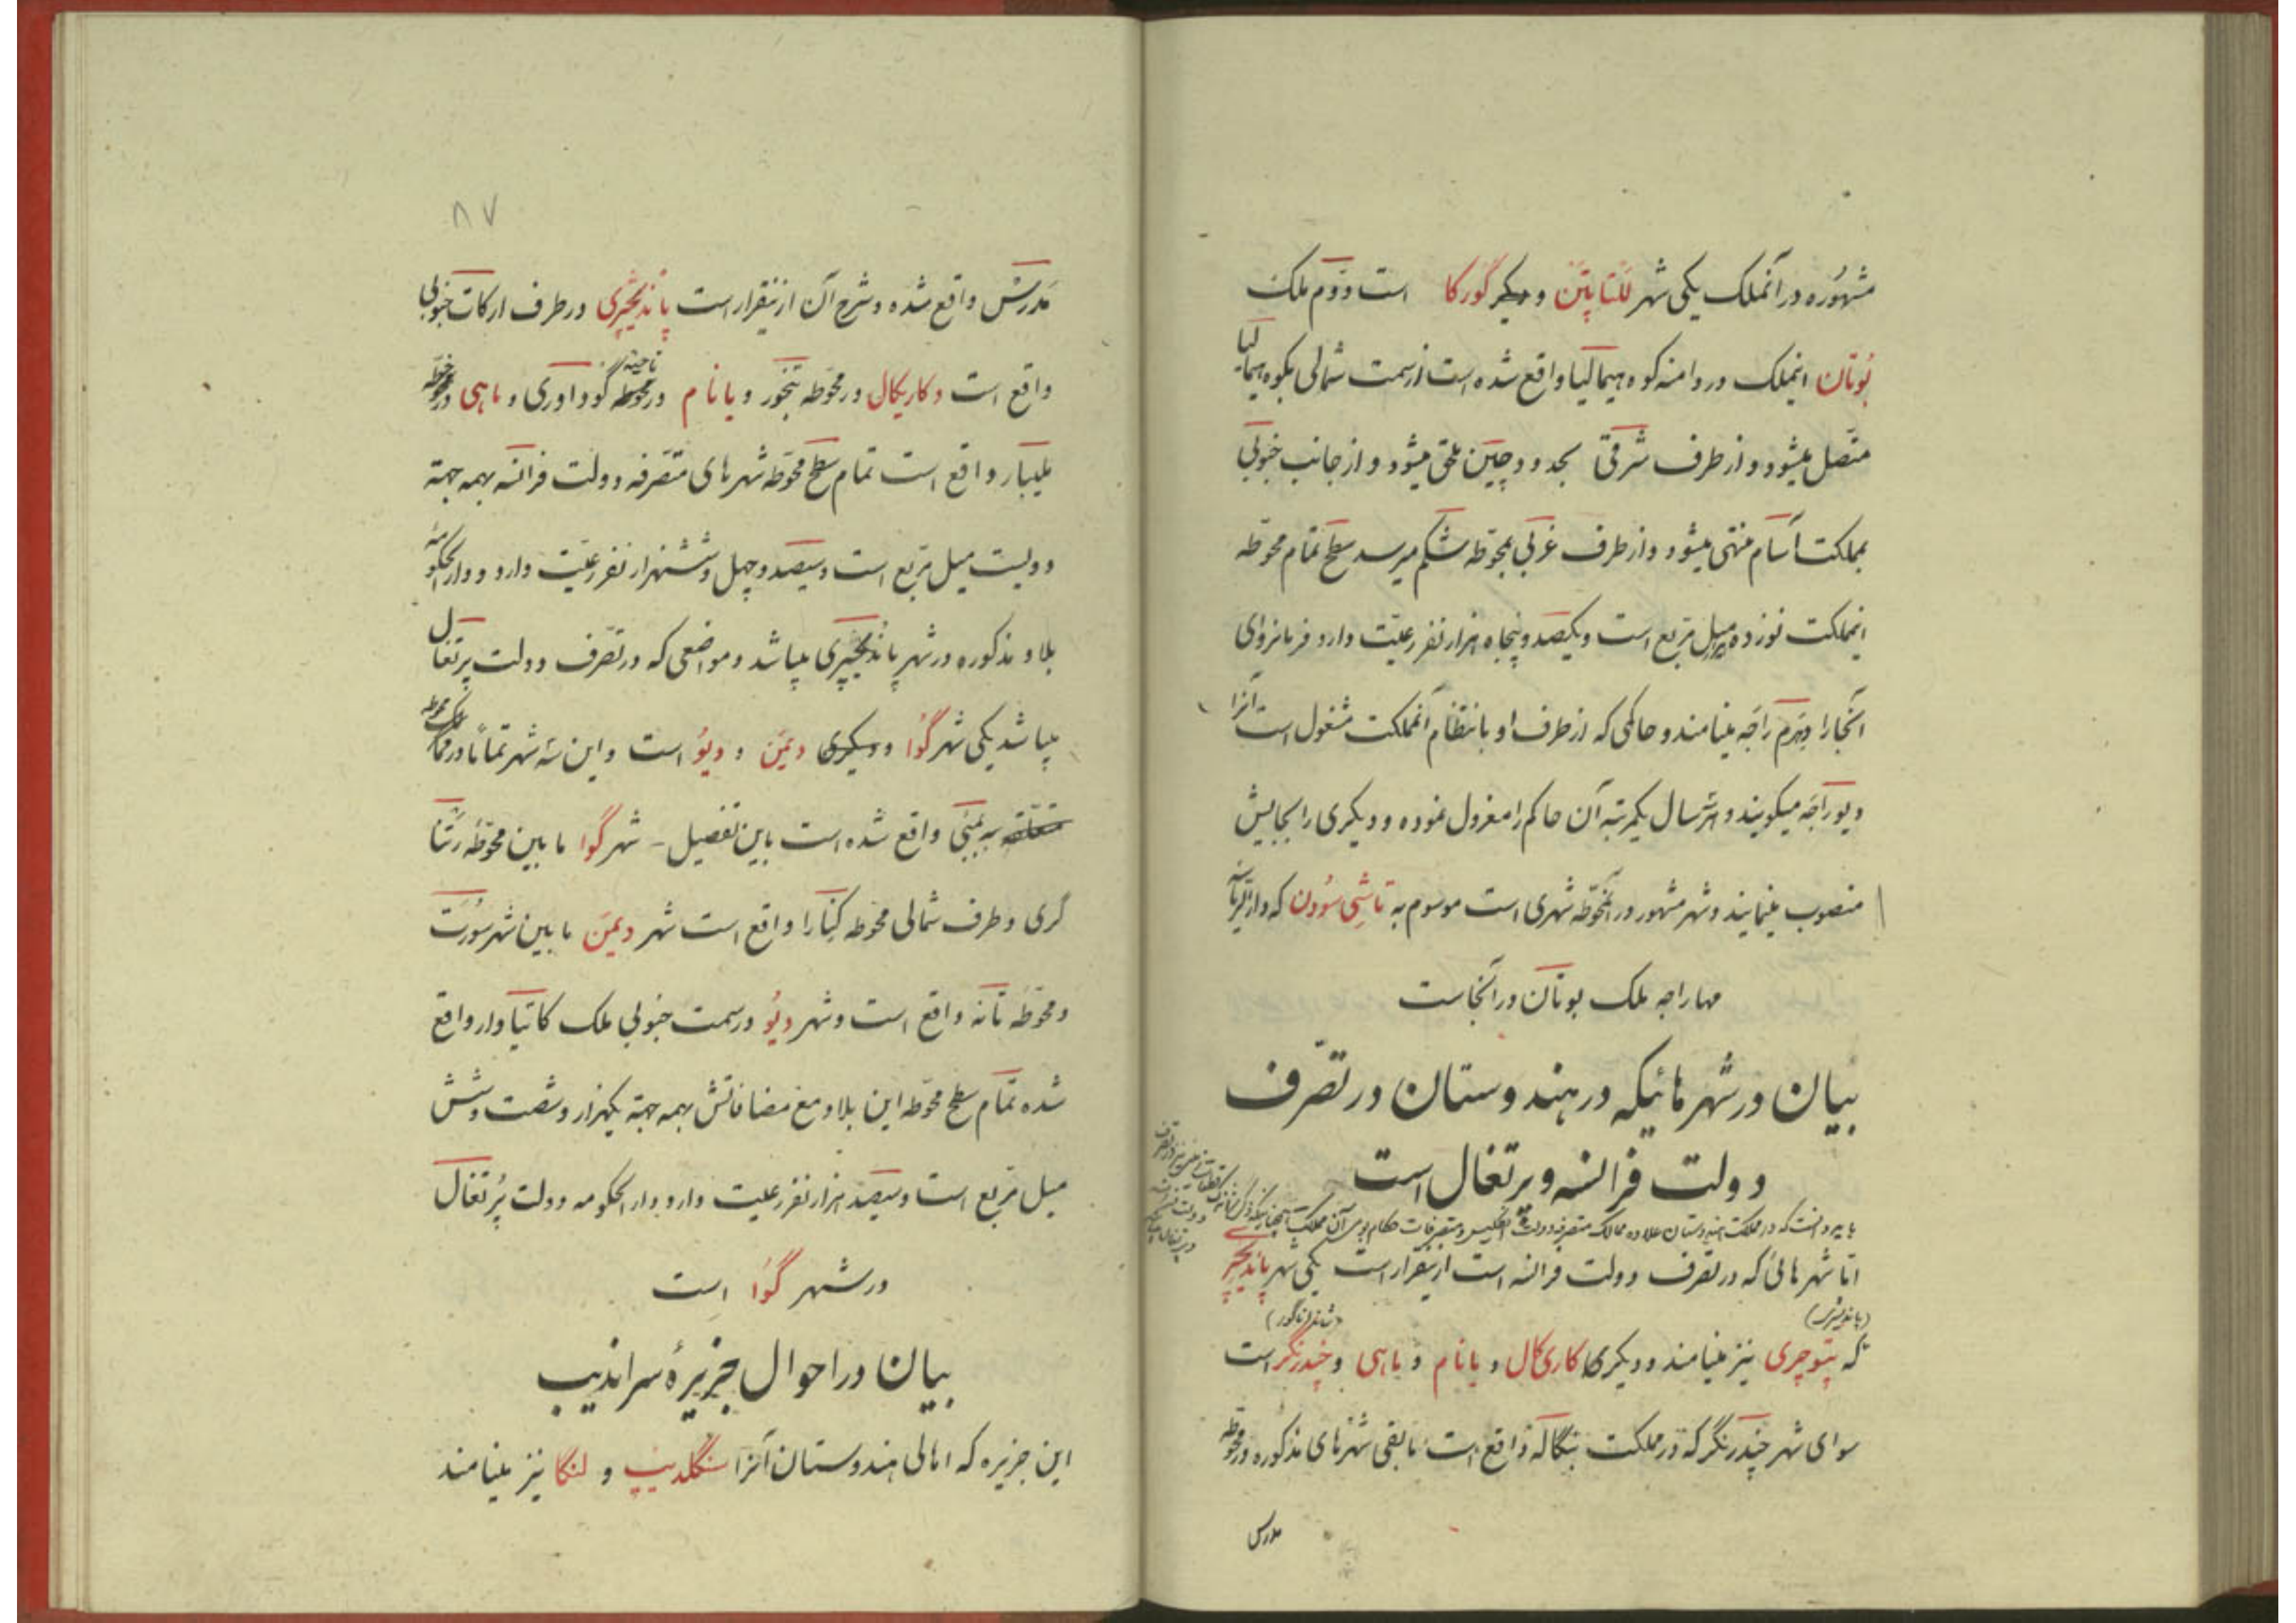 مشهوره در آنملک یکی شهر للتا پتن و دیگر گورکا است دوم ملک
بوتان اینملک در دامنه کوه هیمالیا واقع شده است از سمت شمالی بکوه هیمالیا
متصل میشود و از طرف شرقی بحدود چین ملحق میشود و از جانب جنوبی
بمملکت آسام منتهی میشود و از طرف غربی بمحوطه شکم میرسد سطح تمام محوطه
اینملکت نوزده میل مربع است و یکصد و پنجاه هزار نفر رعیت دارد فرمانروای
آنجا را دهرم راجه مینامند و حاکمی که از طرف او بانتظام آنمملکت مشغول است آنرا
دیوراجه میگویند و هر سال یکمرتبه آن حاکم را معزول نموده و دیگری را بجایش
منصوب مینمایند و شهر مشهور در آنمحوطه شهری است موسوم به تاشی سودن که
مهاراجه ملک بوتان در آنجاست
بیان در شهرهائیکه در هندوستان در تصرف
دولت فرانسه و پرتغال است
باید دانست که در مملکت هندوستان علاوه ممالک متصرفه دولت انگلیس و متصرفات حکام بومی آن مملکت
اما شهرهائی که در تصرف دولت فرانسه است از اینقرار است یکی شهر پاندیچیر
(پاندیشری) (شاندرناگور)
که پتوچری نیز مینامند و دیگری کاریکال و یانام و ماهی و چندرنگر است
سوای شهر چندرنگر که در مملکت بنگاله واقع است مابقی شهرهای مذکوره در محوطه
مدرس
۸۷
مدرس واقع شده و شرح آن از اینقرار است پاندیچیری در طرف ارکات جنوبی
واقع است و کاریکال در محوطه تنجور و یانام در محوطه ناحیهٔ گوداوری و ماهی در خطه
ملیبار واقع است تمام سطح محوطه شهرهای متصرفه دولت فرانسه بهمه جهة
دویست میل مربع است و سیصد و چهل و ششهزار نفر رعیت دارد و دار الحکومهٔ
بلاد مذکوره در شهر پاندیچیری میباشد و مواضعی که در تصرف دولت پرتغال
میباشد یکی شهر گوا و دیگری دیمن و دیو است و این سه شهر تماماً در
متعلقه به بمبئی واقع شده است باین تفصیل - شهر گوا مابین محوطهٔ رتنا
گری و طرف شمالی محوطه کنارا واقع است شهر دیمن مابین شهر سورت
و محوطهٔ تانه واقع است و شهر دیو در سمت جنوبی ملک کاتیاوار واقع
شده تمام سطح محوطه این بلاد مع مضافاتش بهمه جهة یکهزار و شصت و شش
میل مربع است و سیصد هزار نفر رعیت دارد و دار الحکومه دولت پرتغال
در شهر گوا است
بیان در احوال جزیرهٔ سراندیب
این جزیره که اهالی هندوستان آنرا سنگلدیپ و لنکا نیز مینامند